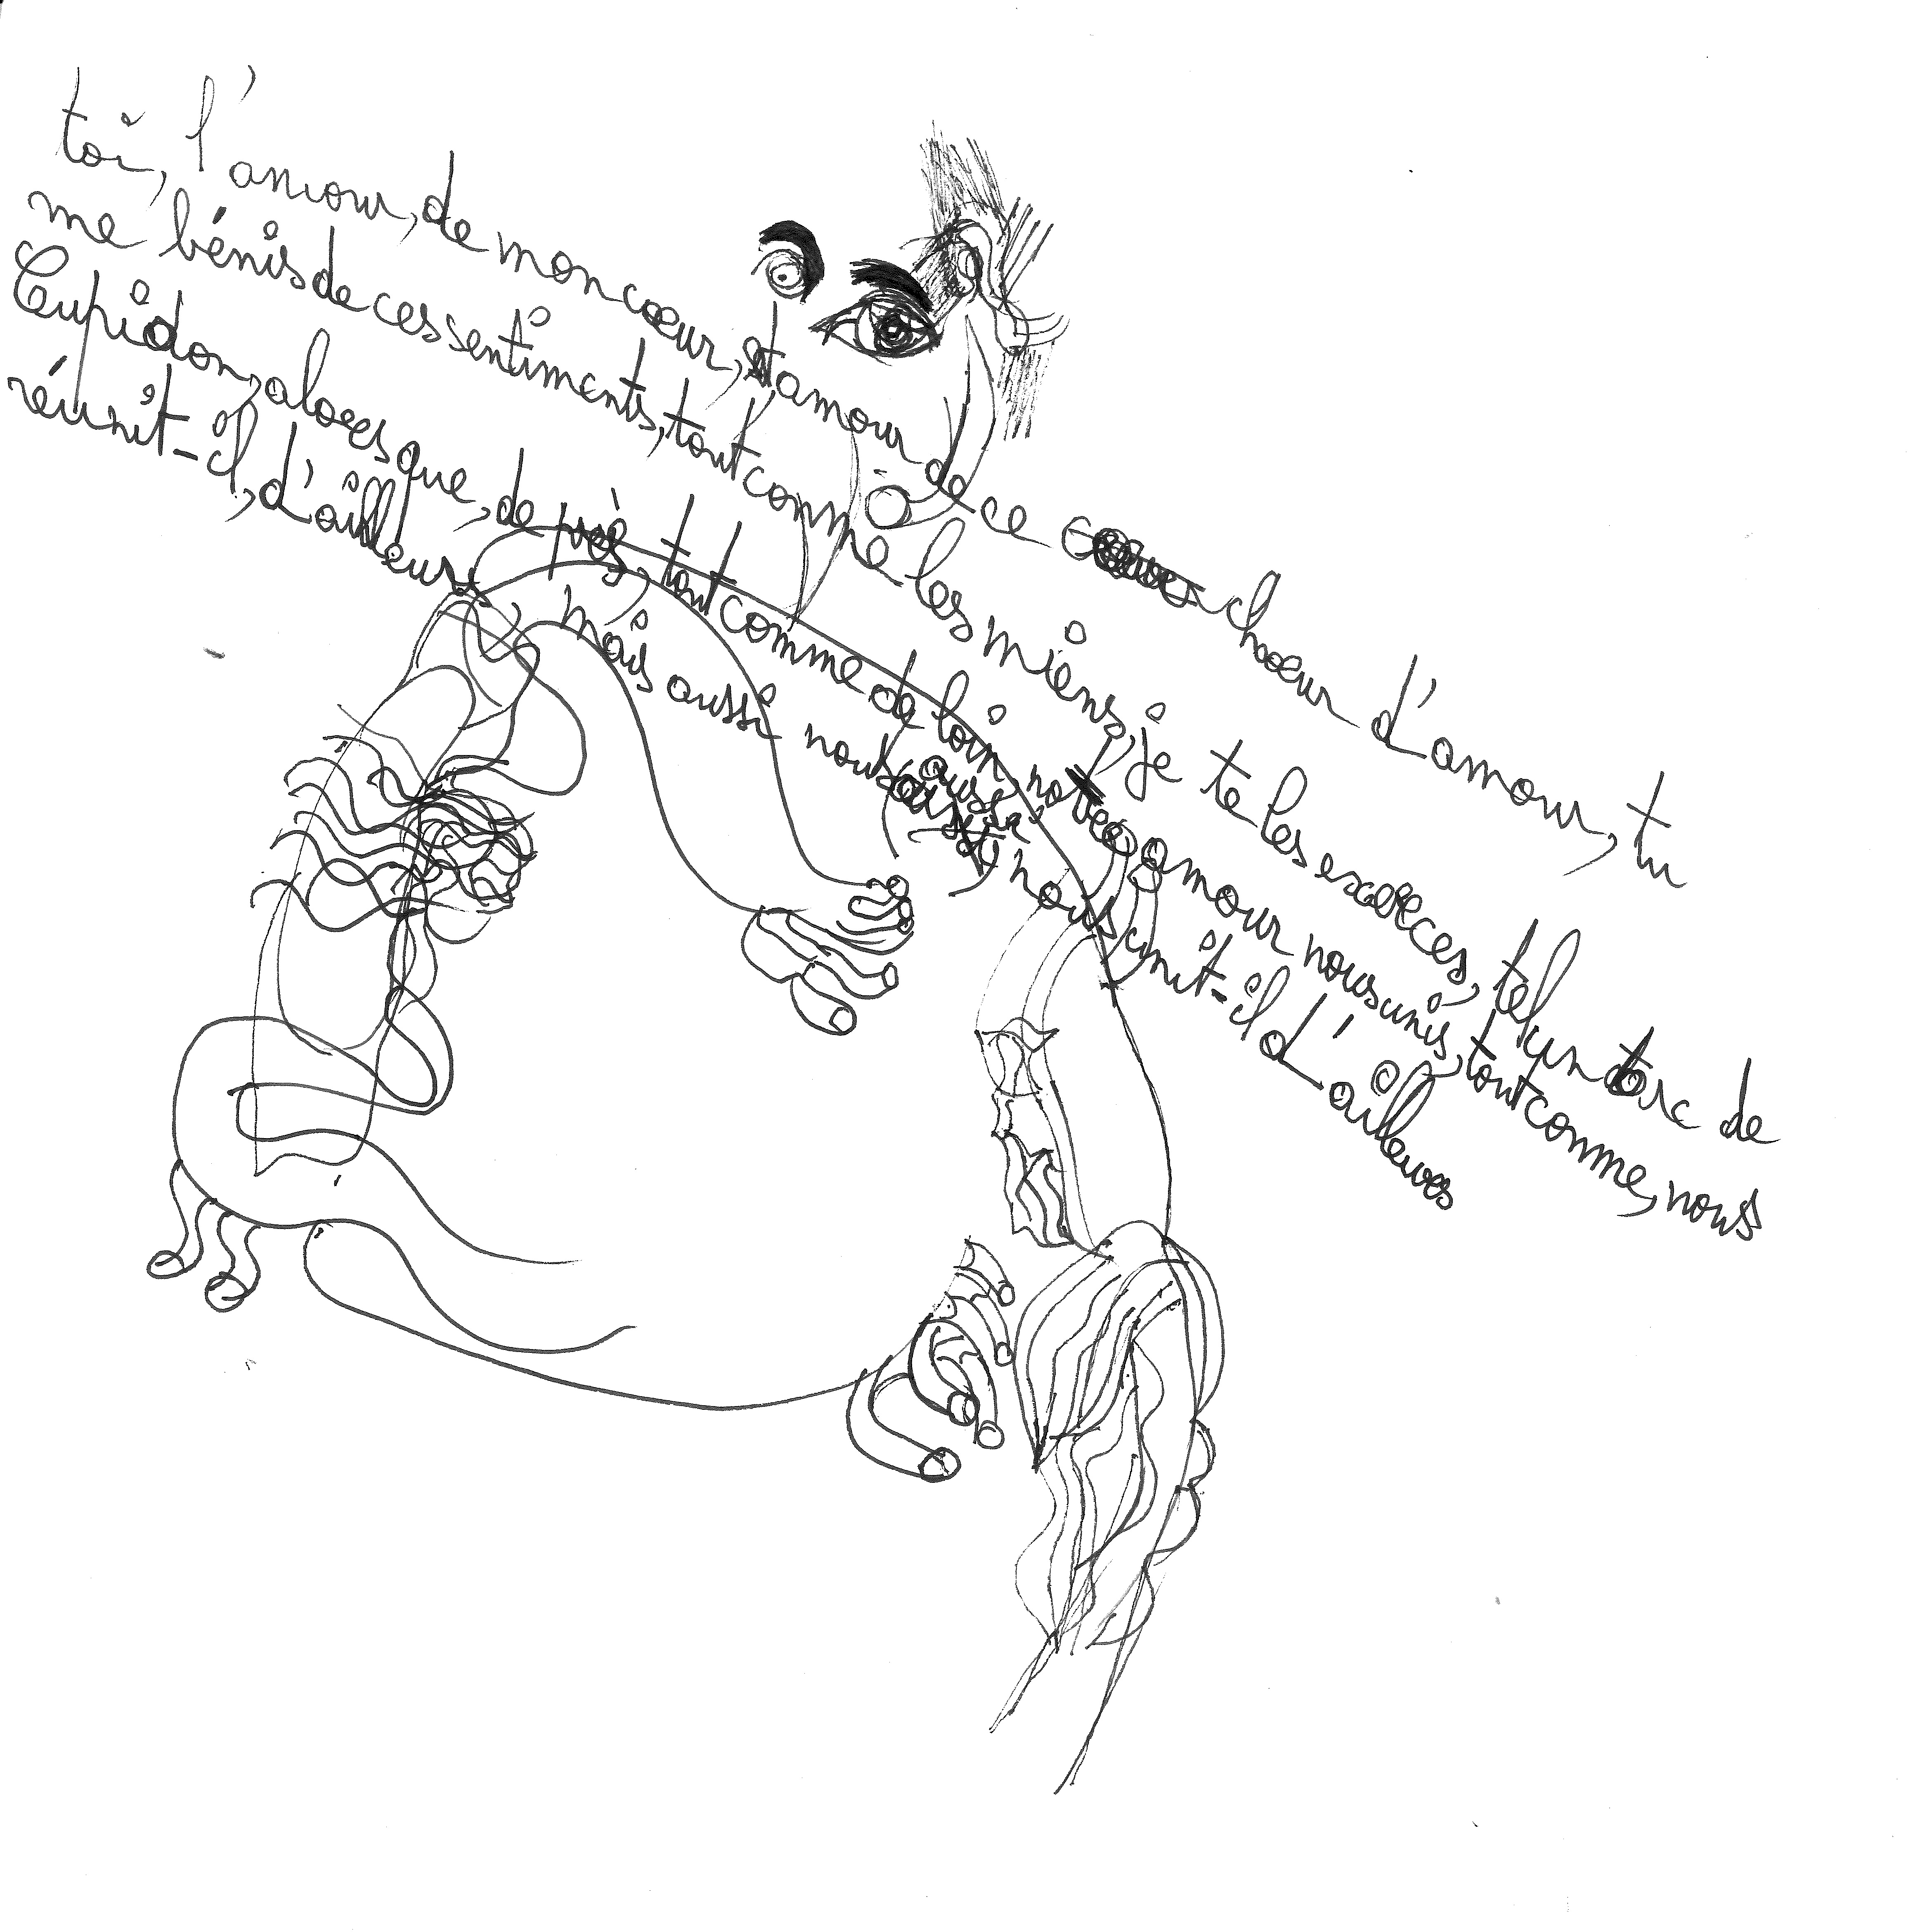 toi, l'amour, de mon cœur, et amour de ce chœur d'amour, tu
me bénis de ces sentiments, tout comme les miens, je te les exerces, tel un torc de
Cupidon, alors que, de près, tout comme de loin, notre amour nous unis, tout comme, nous
réunit-il, d'ailleurs, mais aussi nous aussi nous unit-il d'ailleurs